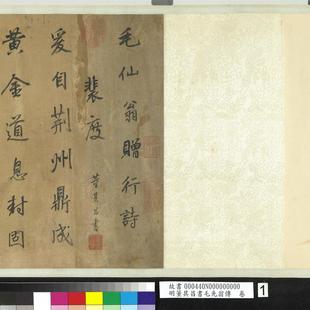 毛仙翁贈行詩
裴度
董其昌書
爰自荆州鼎成
黄金道息封固
故書 000440N000000000
明董其昌書毛先翁傳 卷
1